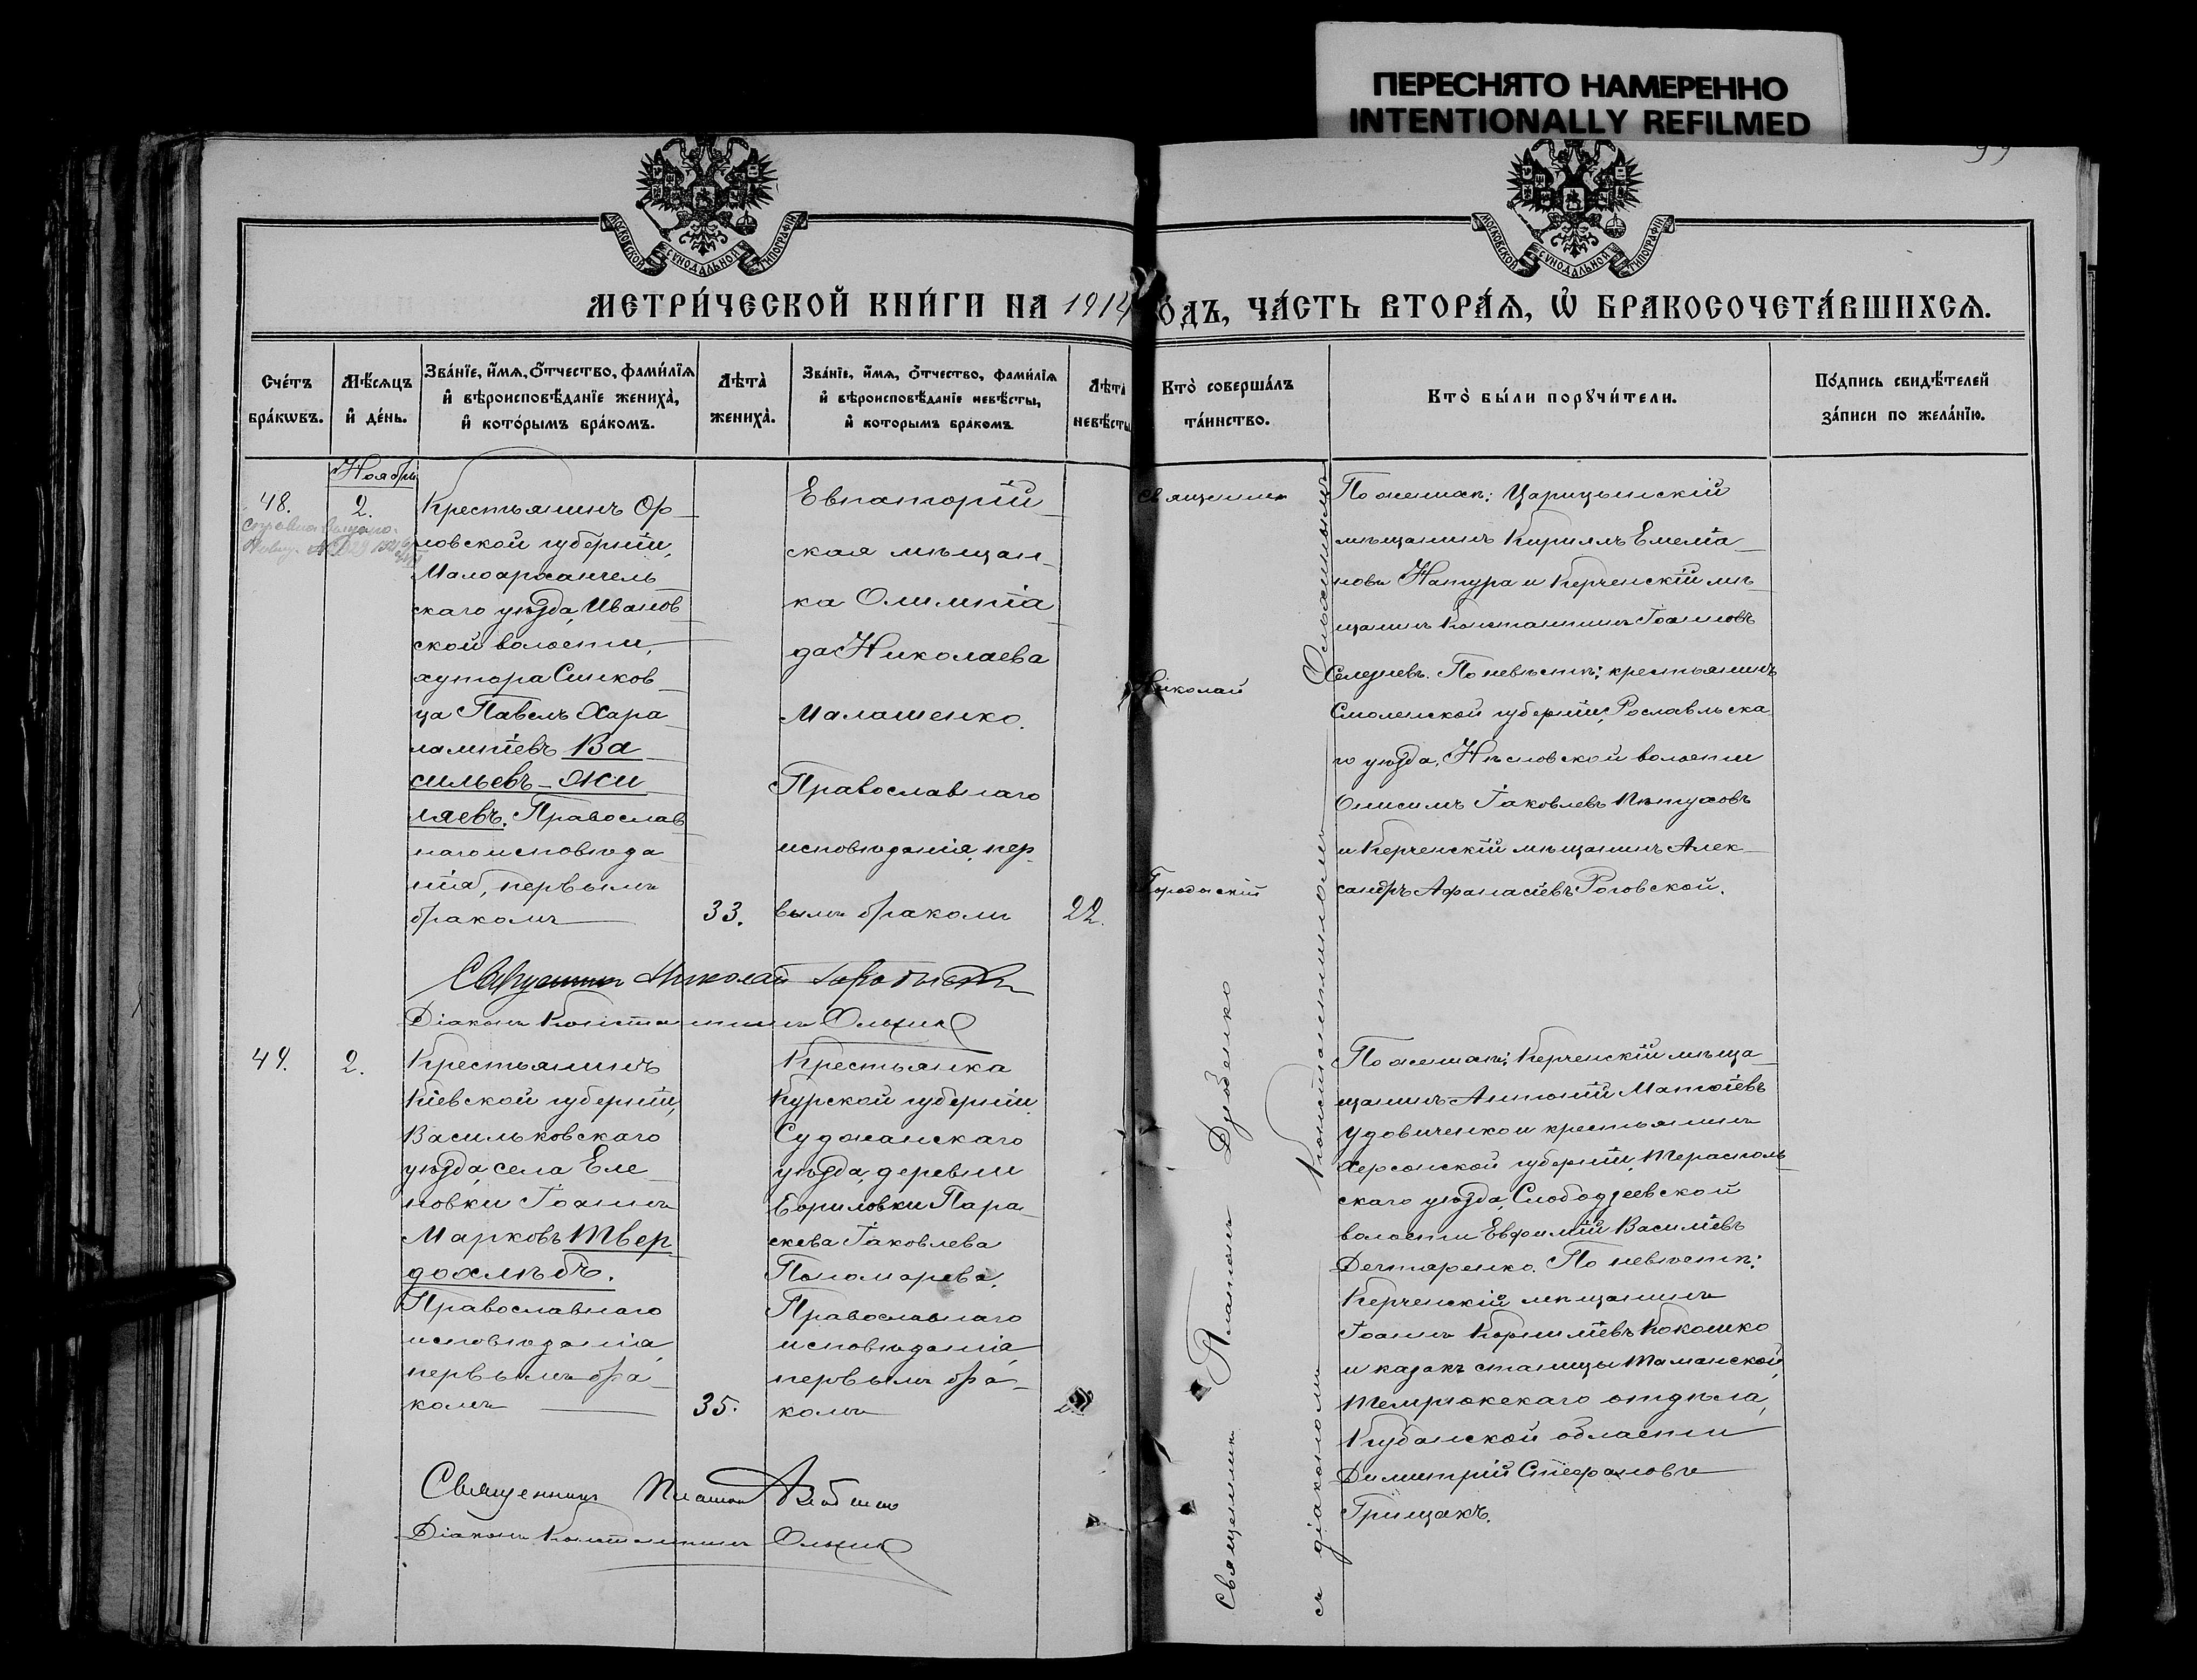 ПЕРЕСНЯТО НАМЕРЕННО
INTENTIONALLY REFILMED
МОСКОВСКОЙ СѴНОДАЛЬНОЙ ТИПОГРАФІИ
МОСКОВСКОЙ СѴНОДАЛЬНОЙ ТИПОГРАФІИ
МЕТРИ́ЧЕСКОЙ КНИ́ГИ НА 1914
ОДЪ, ЧА́СТЬ ВТОРА́Ѧ, Ѡ҆ БРАКОСОЧЕТА́ВШИХСѦ.
Сче́тъ
бра́кѡвъ.
Мѣ́сѧцъ
и҆ де́нь.
Зва́нїе, и҆́мѧ, ѻ҆́тчество, фами́лїѧ
и҆ вѣроисповѣ́данїе жениха̀,
и҆ кото́рымъ бра́комъ.
Лѣта̀
жениха̀.
Зва́нїе, и҆́мѧ, ѻ҆́тчество, фами́лїѧ
и҆ вѣроисповѣ́данїе невѣ́сты,
и҆ которымъ бракомъ
Лѣта
невѣ́сты
Кто̀ соверша́лъ
та́инство.
Кто̀ бы́ли порꙋчи́тели.
По́дпись свидѣ́телей
за́писи по жела́нїю.
Ноября
48.
2.
Крестьянинъ Ор
ловской губерніи,
Малоархангель
скаго уѣзда, Иванов
ской волости,
хутора Синков
ца Павелъ Хара
лампіевъ Ва
сильевъ-Жи
ляевъ. Православ
наго исповѣда
нія, первымъ
бракомъ
33.
Евпаторій
ская мѣщан
ка Олимпіа
да Николаева
Малашенко.
Православнаго
исповѣданія, пер
вымъ бракомъ
22.
Священник
Николай
Городискій
По женихѣ: Царицынскій
мѣщанинъ Кириллъ Емеліа
новъ Натура и Керченскій мѣ
щанинъ Константинъ Іоанновъ
Селезневъ. По невѣстѣ: крестьянинъ
Смоленской губерніи, Рославльска
го уѣзда, волости
Онисимъ Іаковлевъ Пѣтуховъ
и Керченскій мѣщанинъ Алек
сандръ Афанасіевъ Роговской.
Священникъ Николай Городискій
Діаконъ Константинъ
49.
2.
Крестьянинъ
Кіевской губерніи,
Васильковскаго
уѣзда, села Еле
новки Іоаннъ
Марковъ Твер
дохлѣбъ.
Православнаго
исповѣданія,
первымъ бра
комъ
35.
Крестьянка
Курской губерніи
Суджанскаго
уѣзда, деревни
Пара
скева Іаковлева
Пономарева.
Православнаго
исповѣданія,
первымъ бра
комъ
Священникъ Платонъ Дзюбенко
съ діакономъ Константиномъ
По женихѣ: Керченскій мѣща
щанинъ Антоній Матѳіевъ
Удовиченко и крестьянинъ
Херсонской губерніи, Тераспольскаго
уѣзда, Слободзеевской
волости Евфимій Василіевъ
Дегтаренко. По невѣстѣ:
Керченскій мѣщанинъ
Іоаннъ Корниліевъ Кокошко
и казакъ станицы Таманской,
Темрюкскаго отдѣла,
Кубанской области
Димитрій Стефановъ
Грищакъ.
Священникъ Платонъ
Діаконъ Константинъ